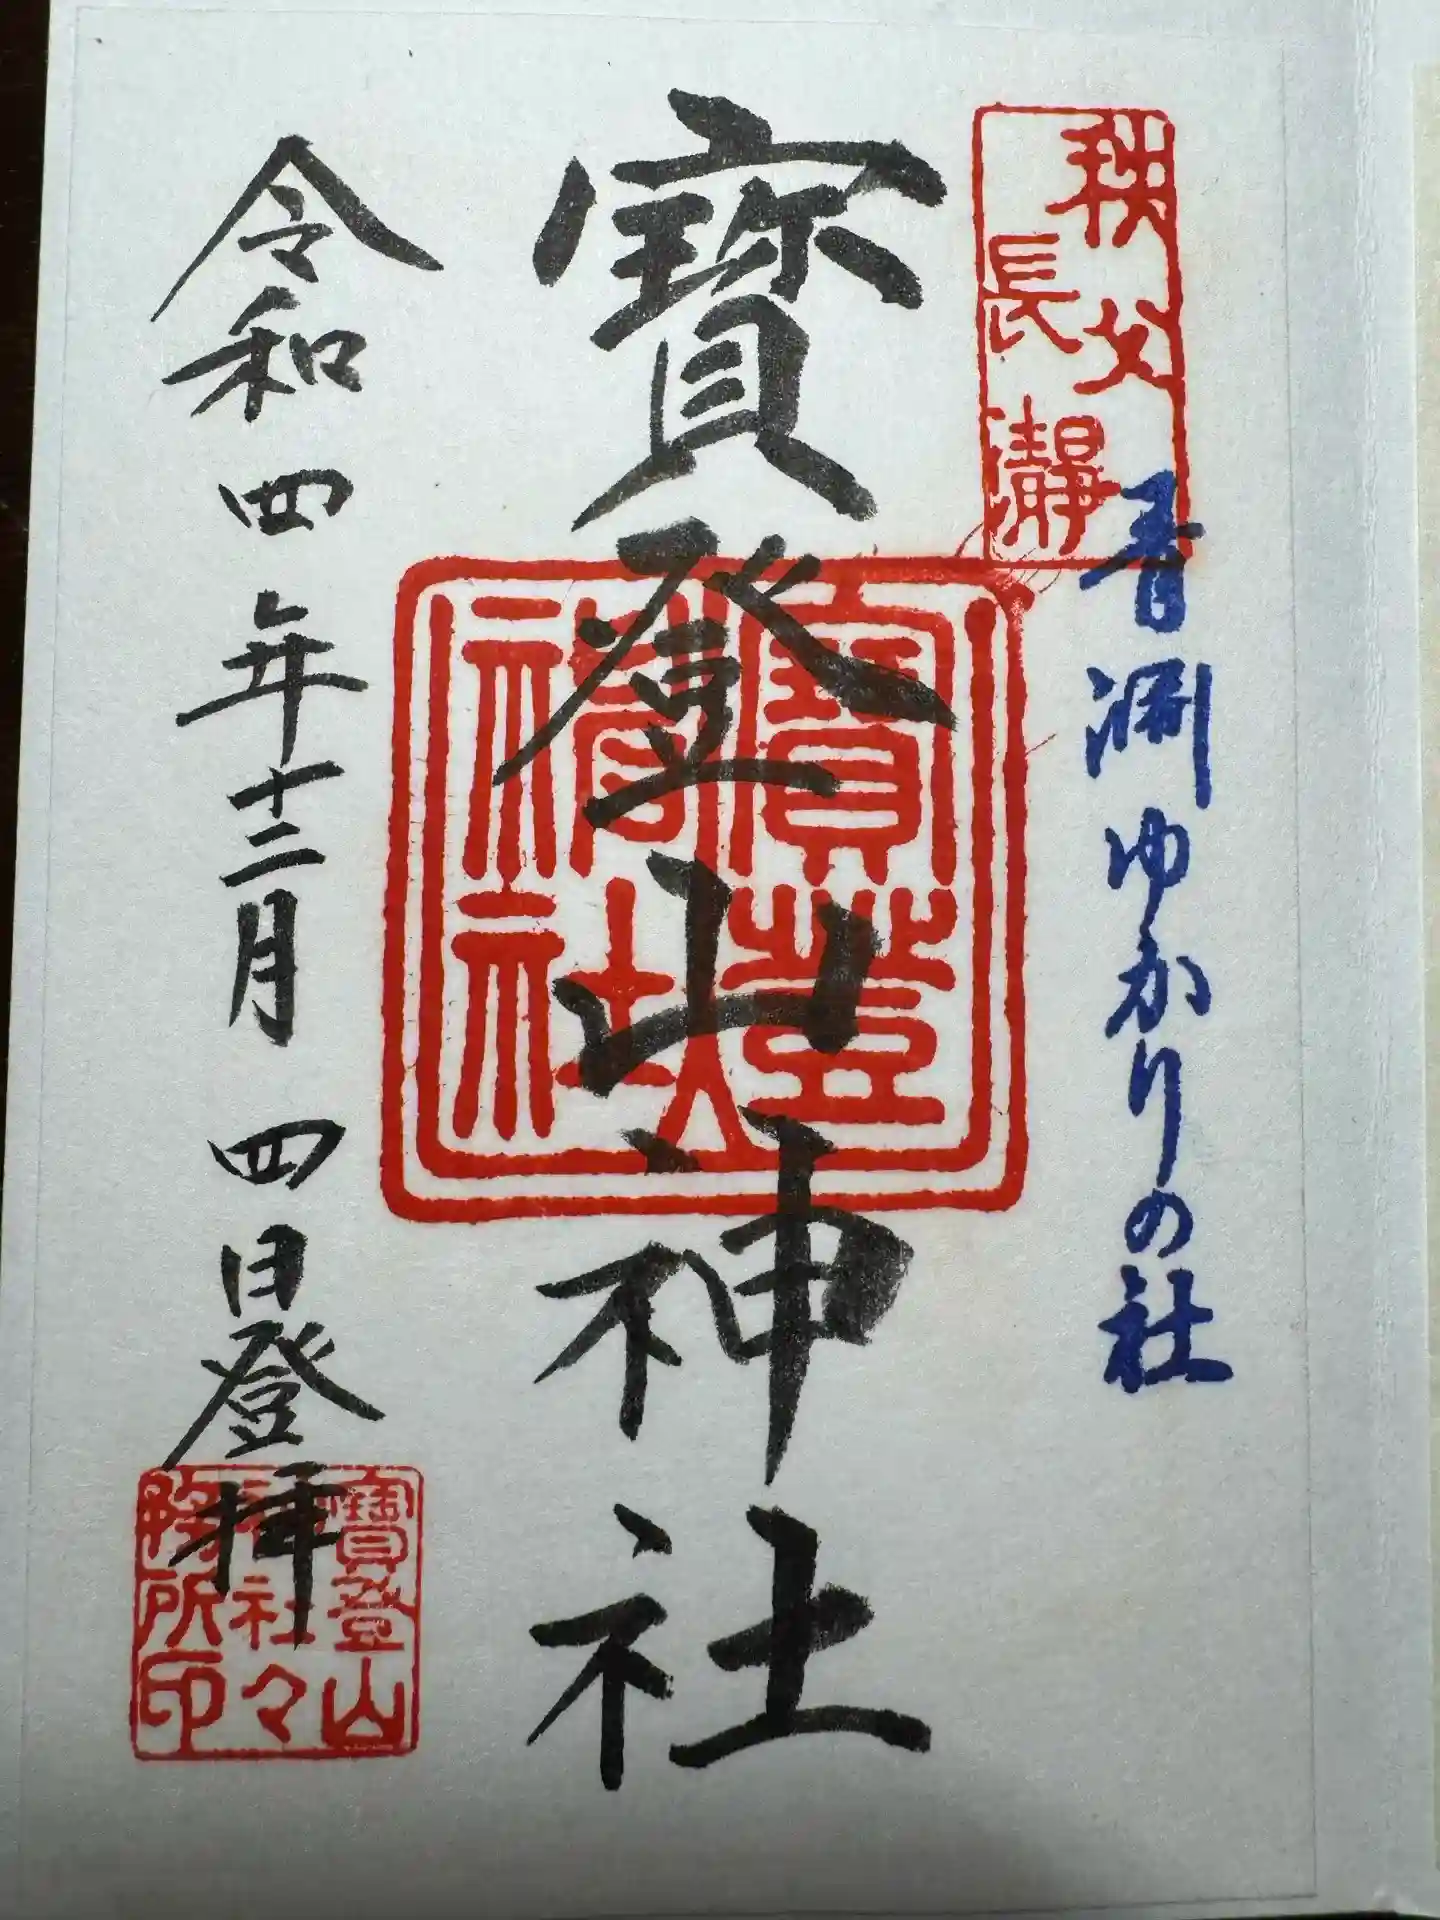 秩父
長瀞
青淵ゆかりの社
寶登山神社
令和四年十二月四日登拝
寶登山
神社々
務所印